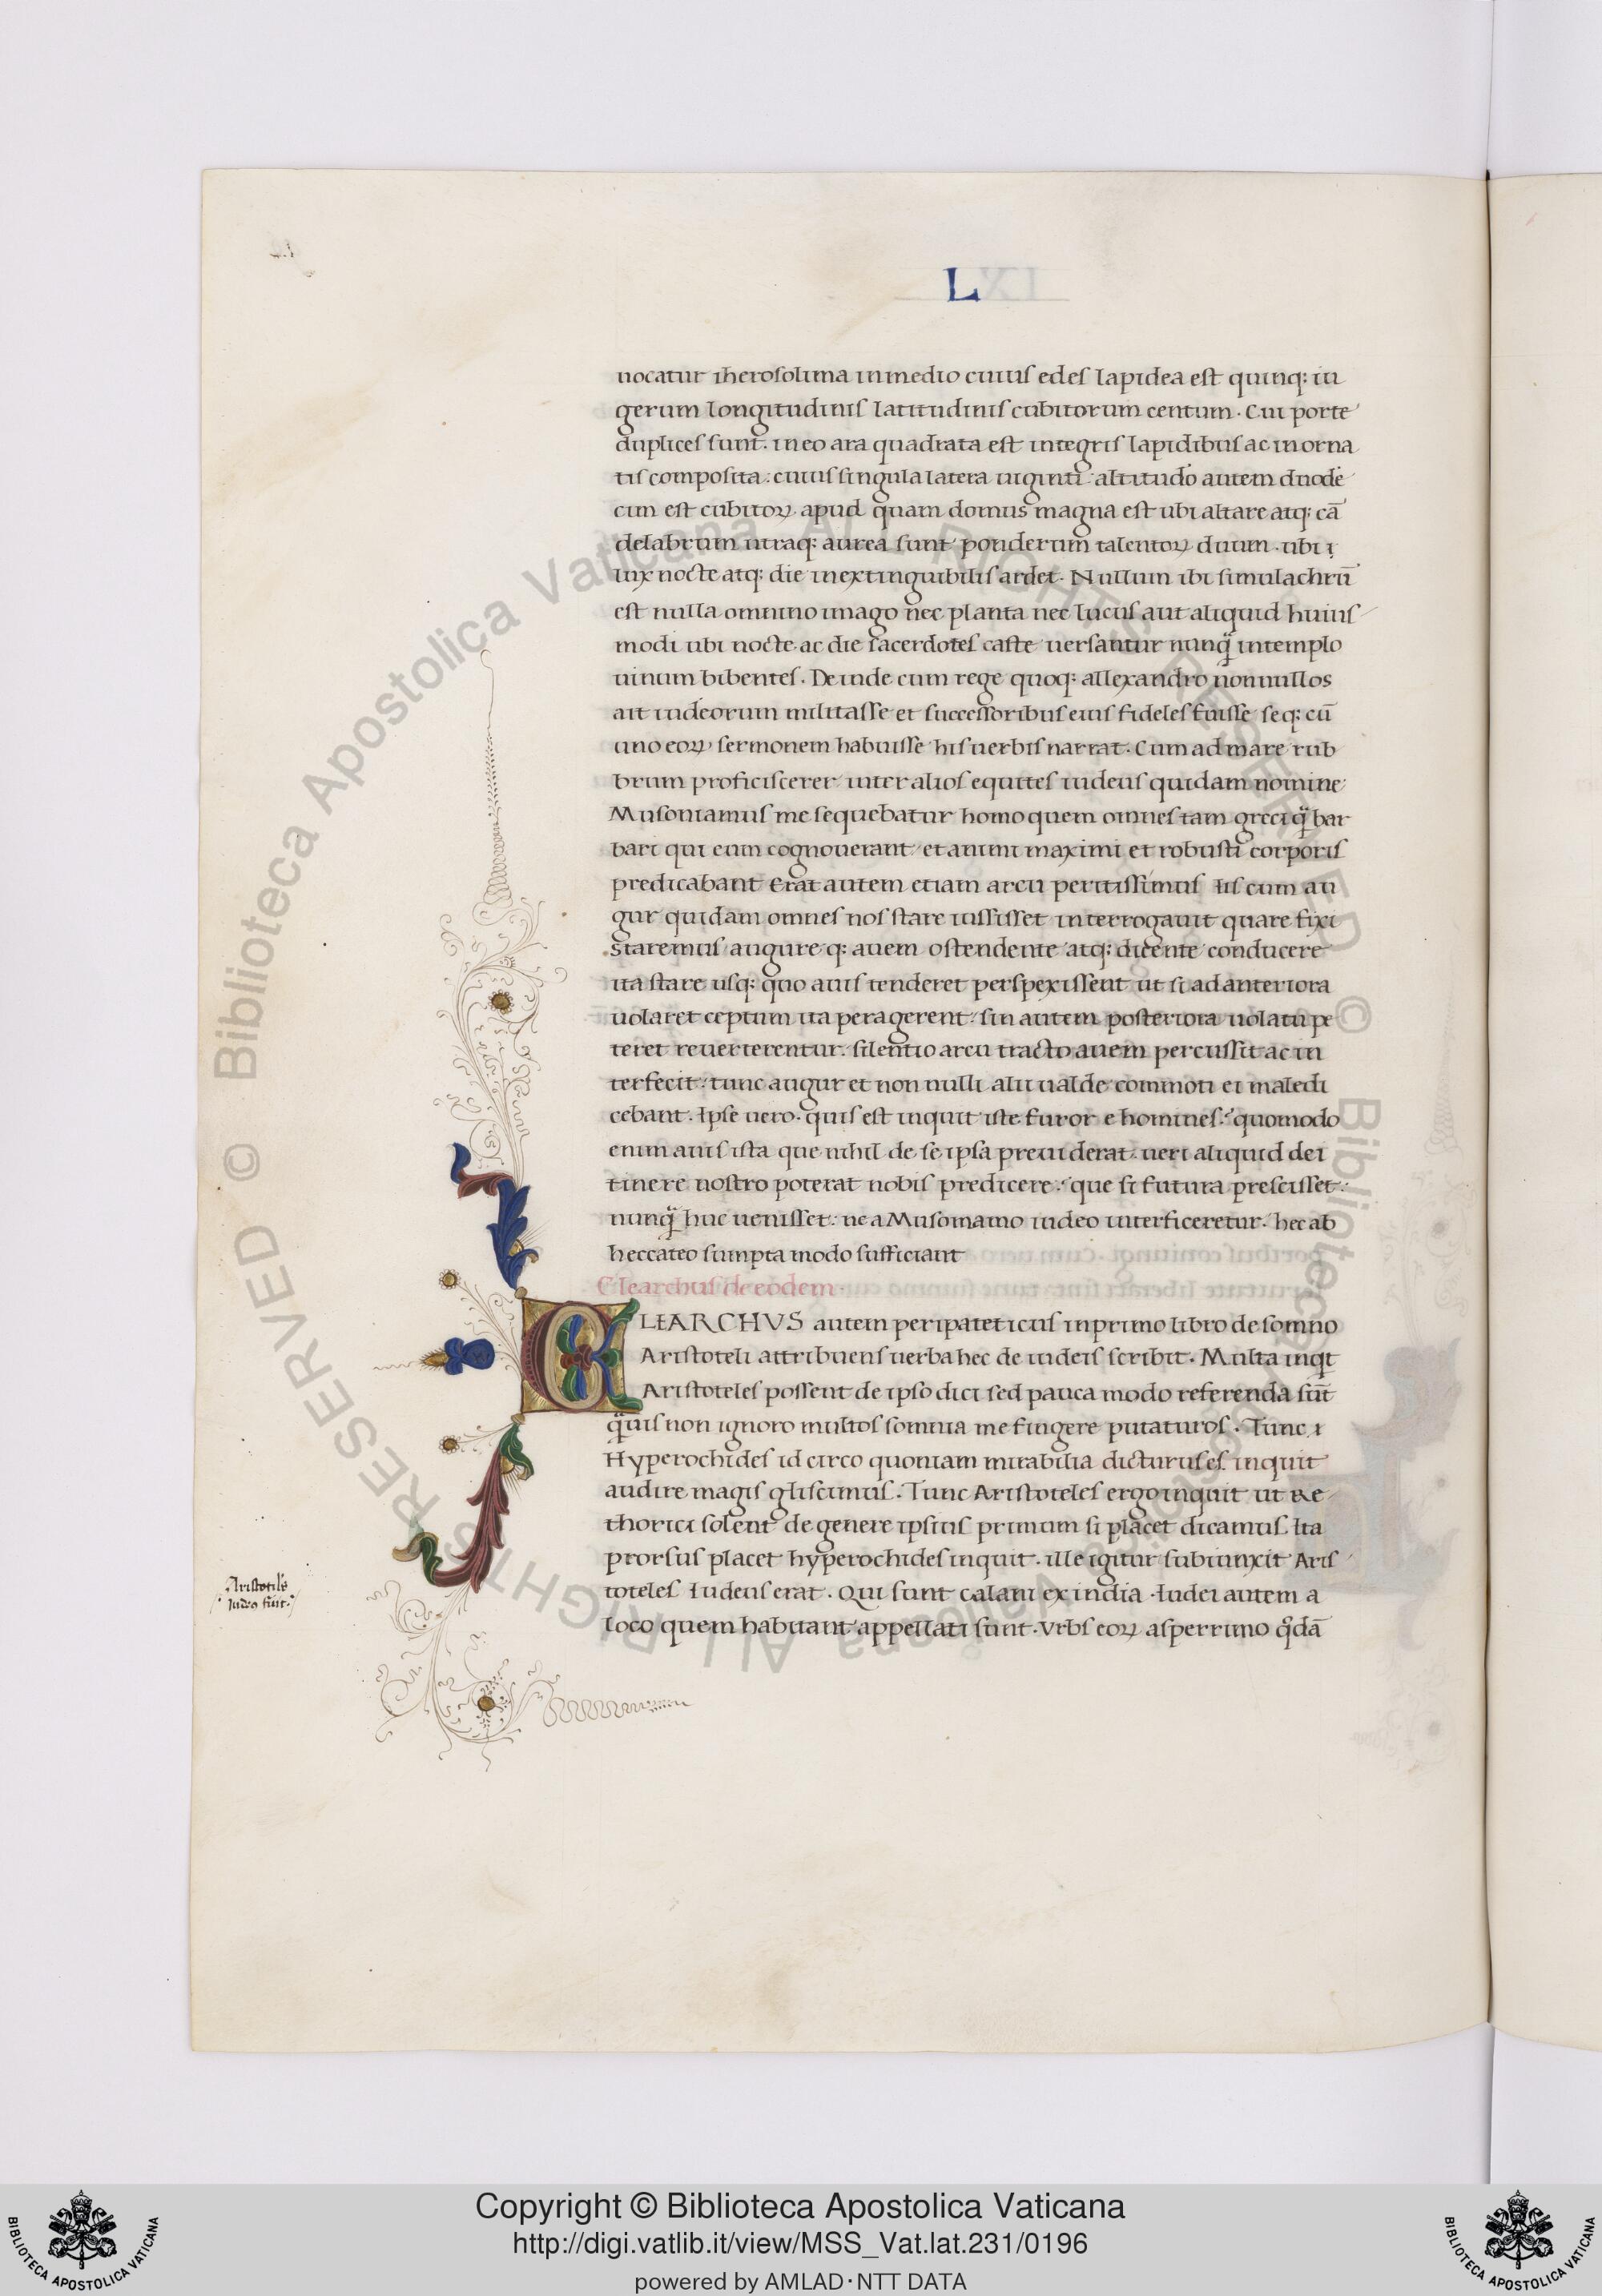 L
uocatur iherosolima in medio cuius edes lapidea est quinq: iu
gerum longitudinis latitudinis cubitorum centum. Cui porte
duplices sunt. in eo ara quadrata est integris lapidibus ac inorna
tis composita: cuius singula latera uiginti altitudo autem duode
cim est cubitoꝝ. apud quam domus magna est ubi altare atq: cā
delabrum utraq: aurea sunt ponderum talentoꝝ duum. ubi ꝛ
lux nocte atq: die inextinguibilis ardet. Nullum ibi simulachrū
est nulla omnino imago nec planta nec lucus aut aliquid huius
modi ubi nocte ac die sacerdotes caste uersantur nunq̈ in templo
uinum bibentes. Deinde cum rege quoq: allexandro nonnullos
ait iudeorum militasse et successoribus eius fideles fuisse seq: cū
uno eoꝝ sermonem habuisse his uerbis narrat. Cum ad mare rub
brum proficiscerer inter alios equites iudeus quidam nomine
Musoniamus me sequebatur homo quem omnes tam greci q̈ bar
bari qui eum cognouerant et animi maximi et robusti corporis
predicabant Erat autem etiam arcu peritissimus Iis cum au
gur quidam omnes nos stare iussisset interrogauit quare fixi
staremus augure q: auem ostendente atq: dicente conducere
ita stare usq: quo auis tenderet perspexissent ut si ad anteriora
uolaret ceptum ita peragerent. sin autem posteriora uolatu pe
teret reuerterentur. silentio arcu tracto auem percussit ac in
terfecit: tunc augur et non nulli alii ualde commoti ei maledi
cebant. Ipse uero. quis est inquit iste furor e homines: quomodo
enim auis ista que nihil de se ipsa preuiderat. ueri aliquid de i
tinere nostro poterat nobis predicere: que si futura prescisset:
nunq̈ huc uenisset: ne a Musomamo iudeo interficeretur. hec ab
heccateo sumpta modo sufficiant
Clearchus de eodem
CLEARCHVS autem peripateticus in primo libro de somno
Aristoteli attribuens uerba hec de iudeis scribit. Multa inqt
Aristoteles possent de ipso dici sed pauca modo referenda sūt
q̈uis non ignoro multos somnia me fingere putaturos. Tunc ꝛ
Hyperochides id circo quoniam mirabilia dicturus es inquit
audire magis gliscimus. Tunc Aristoteles ergo inquit ut Re
thorici solent de genere ipsius primum si placet dicamus. Ita
prorsus placet hyperochides inquit. ille igitur subiunxit Aris
toteles Iudeus erat. Qui sunt calani ex india. Iudei autem a
loco quem habitant appellati sunt. Vrbs eoꝝ asperrimo q̊dā
Aristotiles
Iudeo fuit.
Copyright © Biblioteca Apostolica Vaticana
http://digi.vatlib.it/view/MSS_Vat.lat.231/0196
powered by AMLAD·NTT DATA
BIBLIOTECA APOSTOLICA VATICANA
BIBLIOTECA APOSTOLICA VATICANA
© Biblioteca Apostolica Vaticana ALL RIGHTS RESERVED © Biblioteca Apostolica Vaticana ALL RIGHTS RESERVED